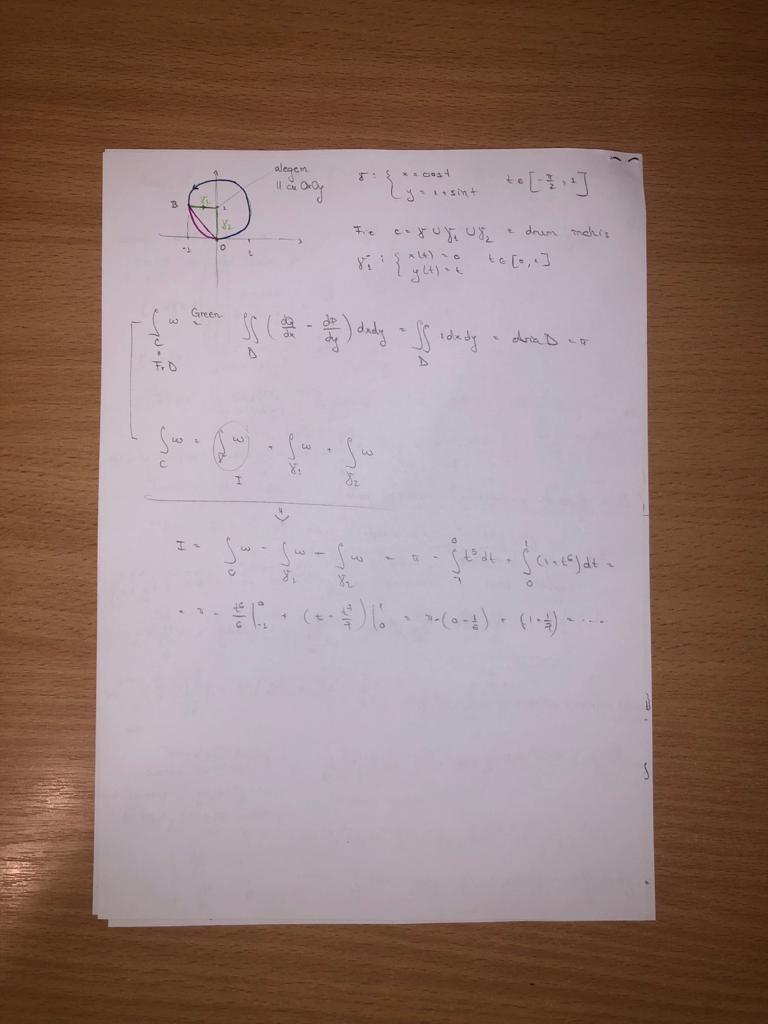 alegem
|| cu OxOy
B γ₁ 1
γ₂
-1 0 1
γ: { x = cost
y = 1+sint t ∈ [-π/2, 1]
Fie c = γ ∪ γ₁ ∪ γ₂ = drum închis
γ₂⁻: { x(t) = 0
y(t) = t t ∈ [0,1]
∫_C ω =^Green ∬_D (dQ/dx - dP/dy) dxdy = ∬_D 1dxdy = aria D = π
Fr D
∫_C ω = ∫_γ ω + ∫_γ₁ ω + ∫_γ₂ ω
I
⇓
I = ∫_C ω - ∫_γ₁ ω + ∫_γ₂ ω = π - ∫_{-1}^0 t⁵dt + ∫_0^1 (1+t⁶)dt =
= π - t⁶/6 |_{-1}^0 + (t + t⁷/7) |_0^1 = π - (0 - 1/6) + (1 + 1/7) = ...